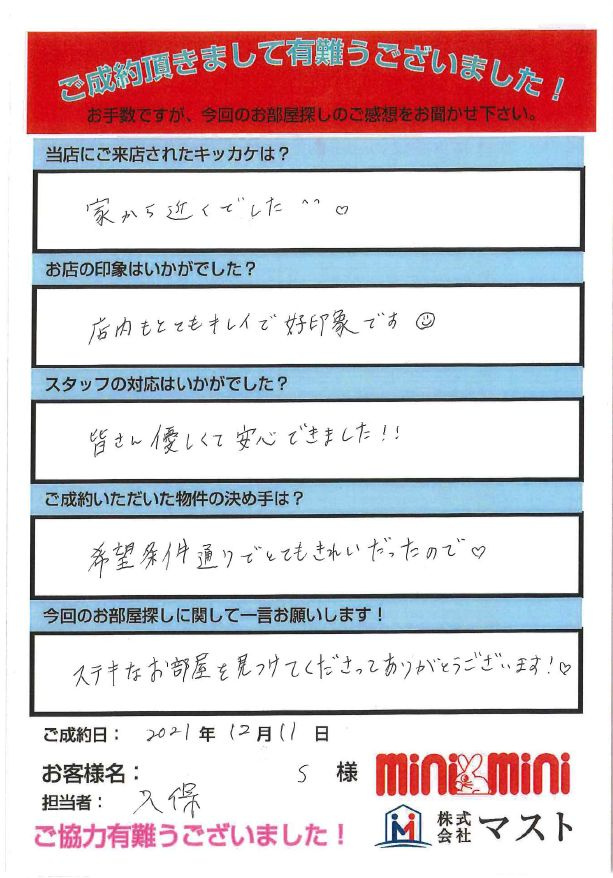 ご成約頂きまして有難うございました！
お手数ですが、今回のお部屋探しのご感想をお聞かせ下さい。
当店にご来店されたキッカケは？
家から近くでした^^♡
お店の印象はいかがでした？
店内もとてもキレイで好印象です☺
スタッフの対応はいかがでした？
皆さん優しくて安心できました!!
ご成約いただいた物件の決め手は？
希望条件通りでとてもきれいだったので♡
今回のお部屋探しに関して一言お願いします！
ステキなお部屋を見つけてくださってありがとうございます!♡
ご成約日： 2021年 12月 11日
お客様名： S 様
担当者： 久保
ご協力有難うございました！
mini mini
株式会社マスト